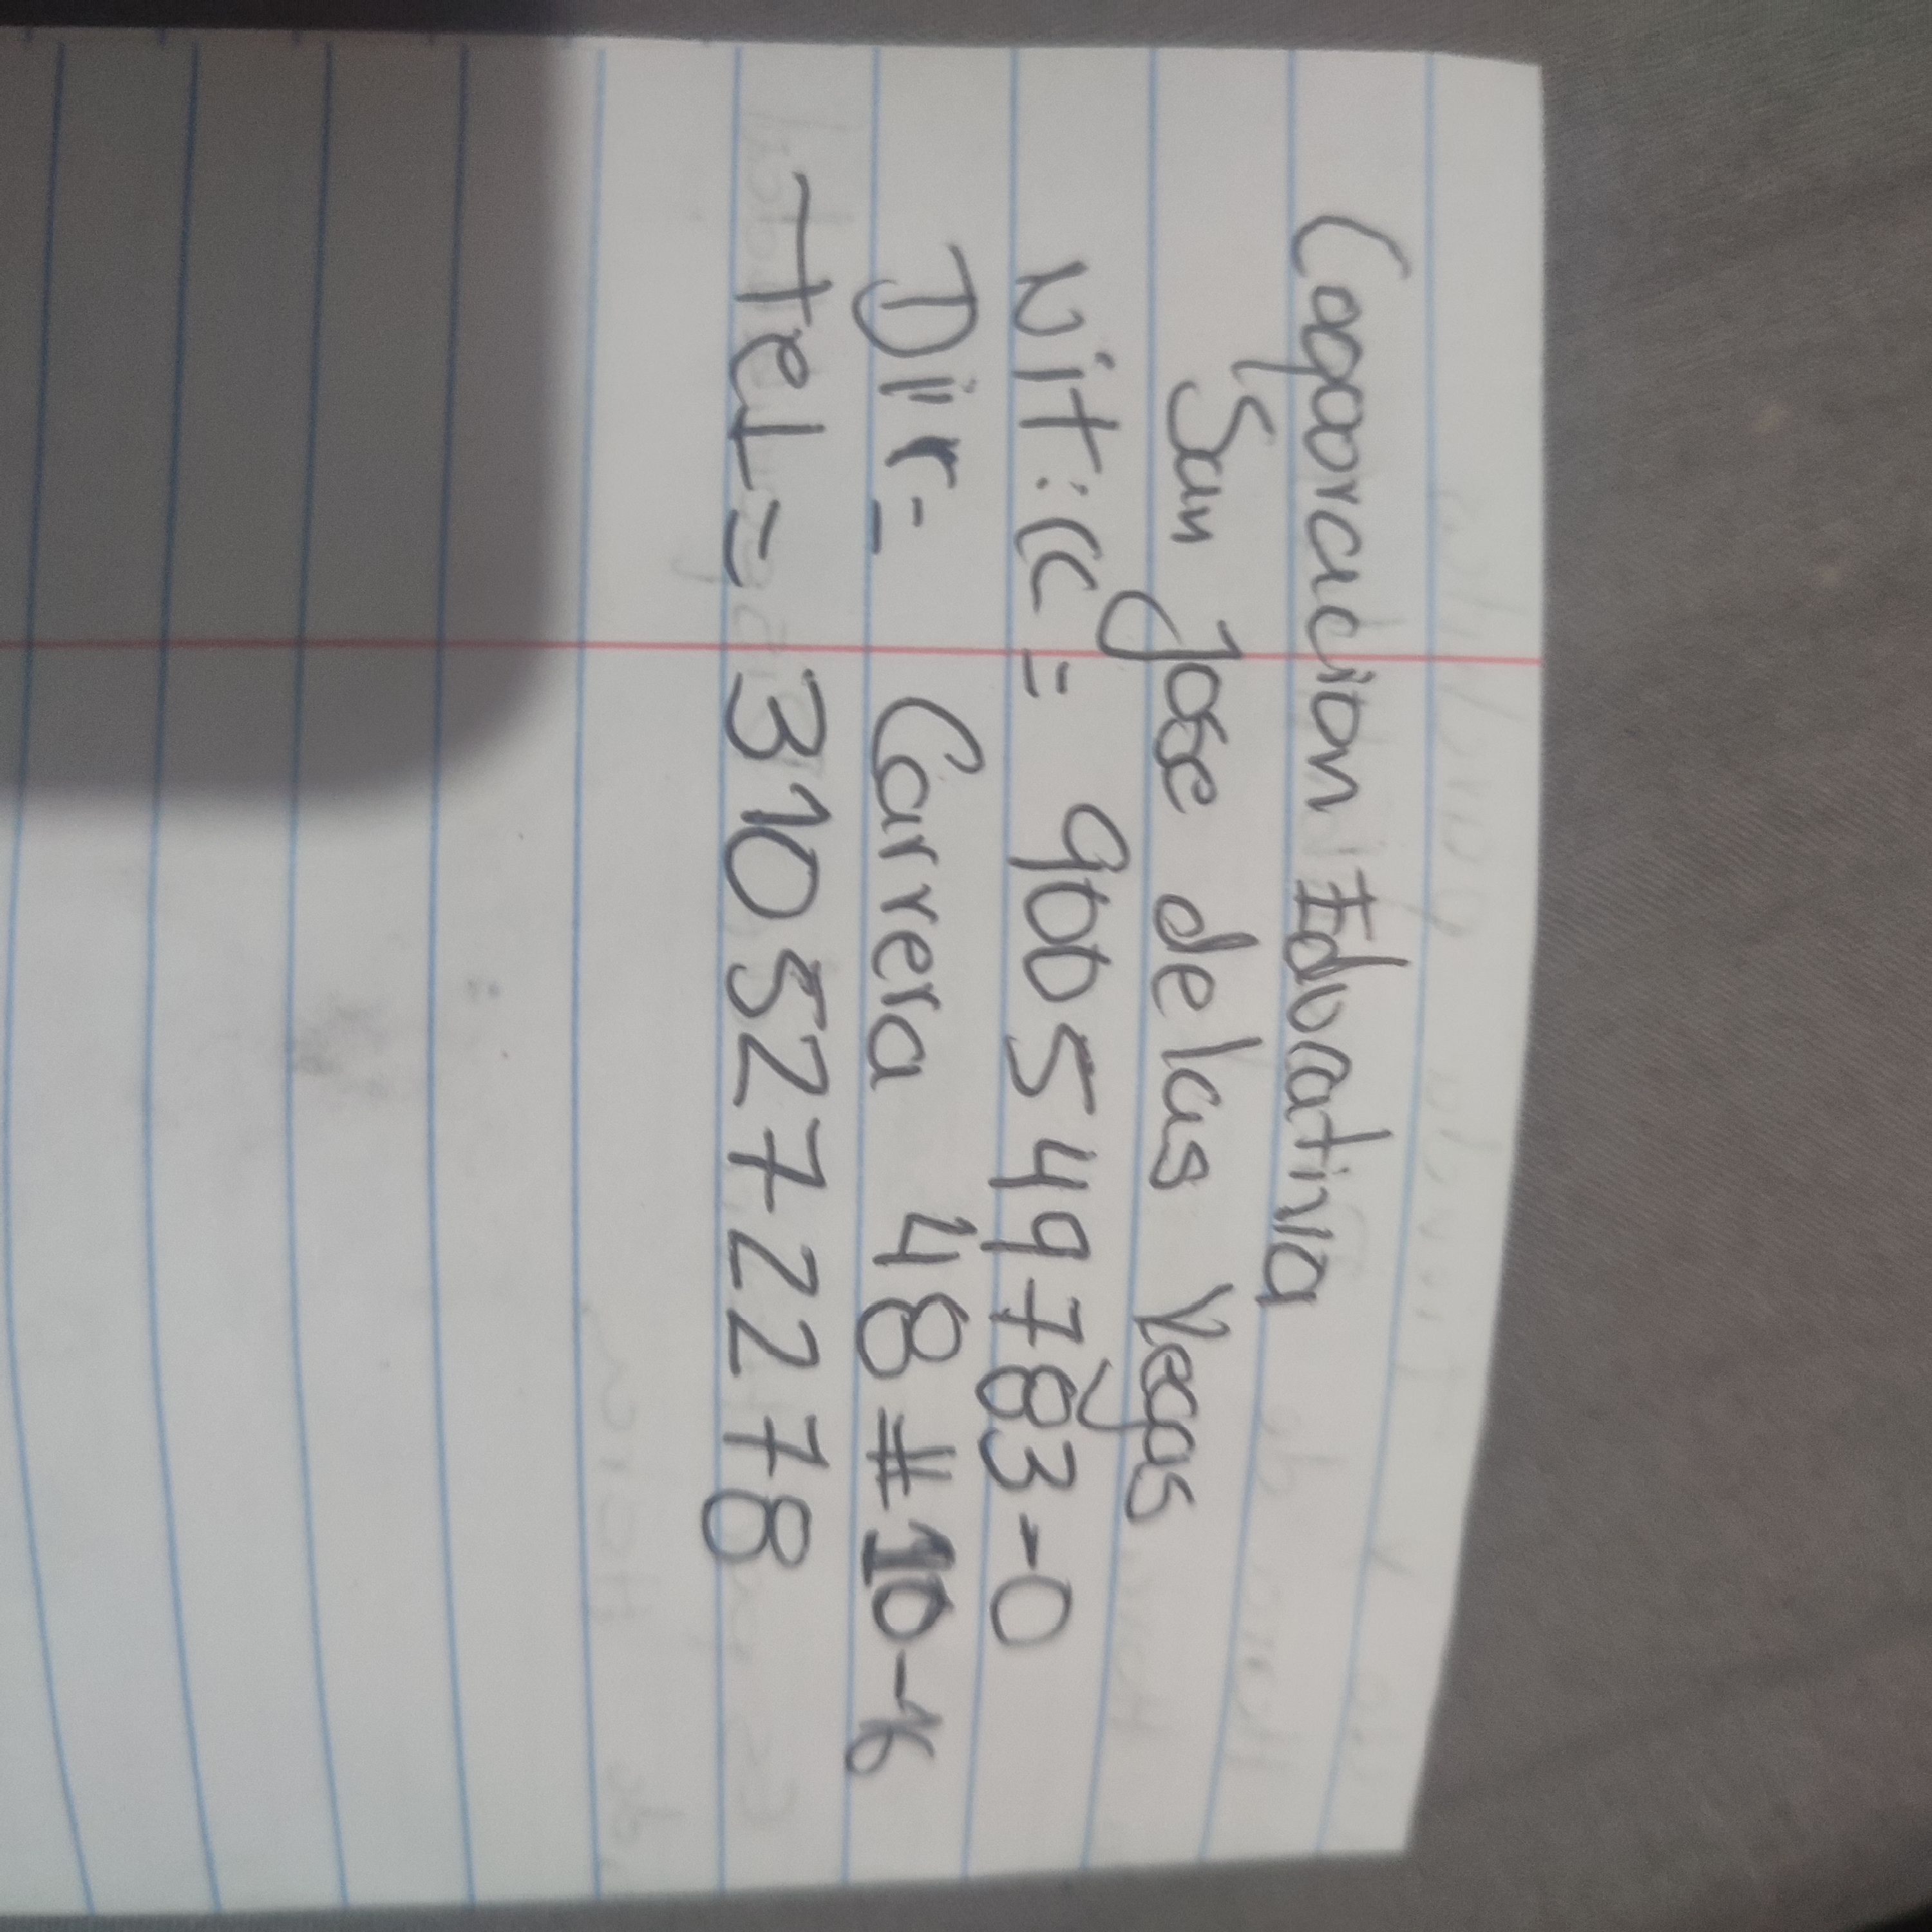 Coporacion Educativa
San Jose de las Vegas
Nit: CC = 900549783-0
Dir = Carrera 48 # 10-16
Tel = 310 527 22 78